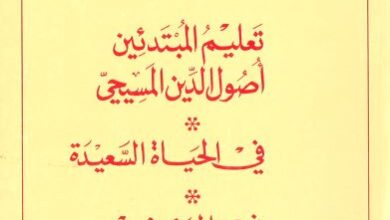 تَعليمُ المُبْتَدئين
أصُول الدِّين المَسِيحيّ
*
في الحَيَاة السَّعِيدَة
*